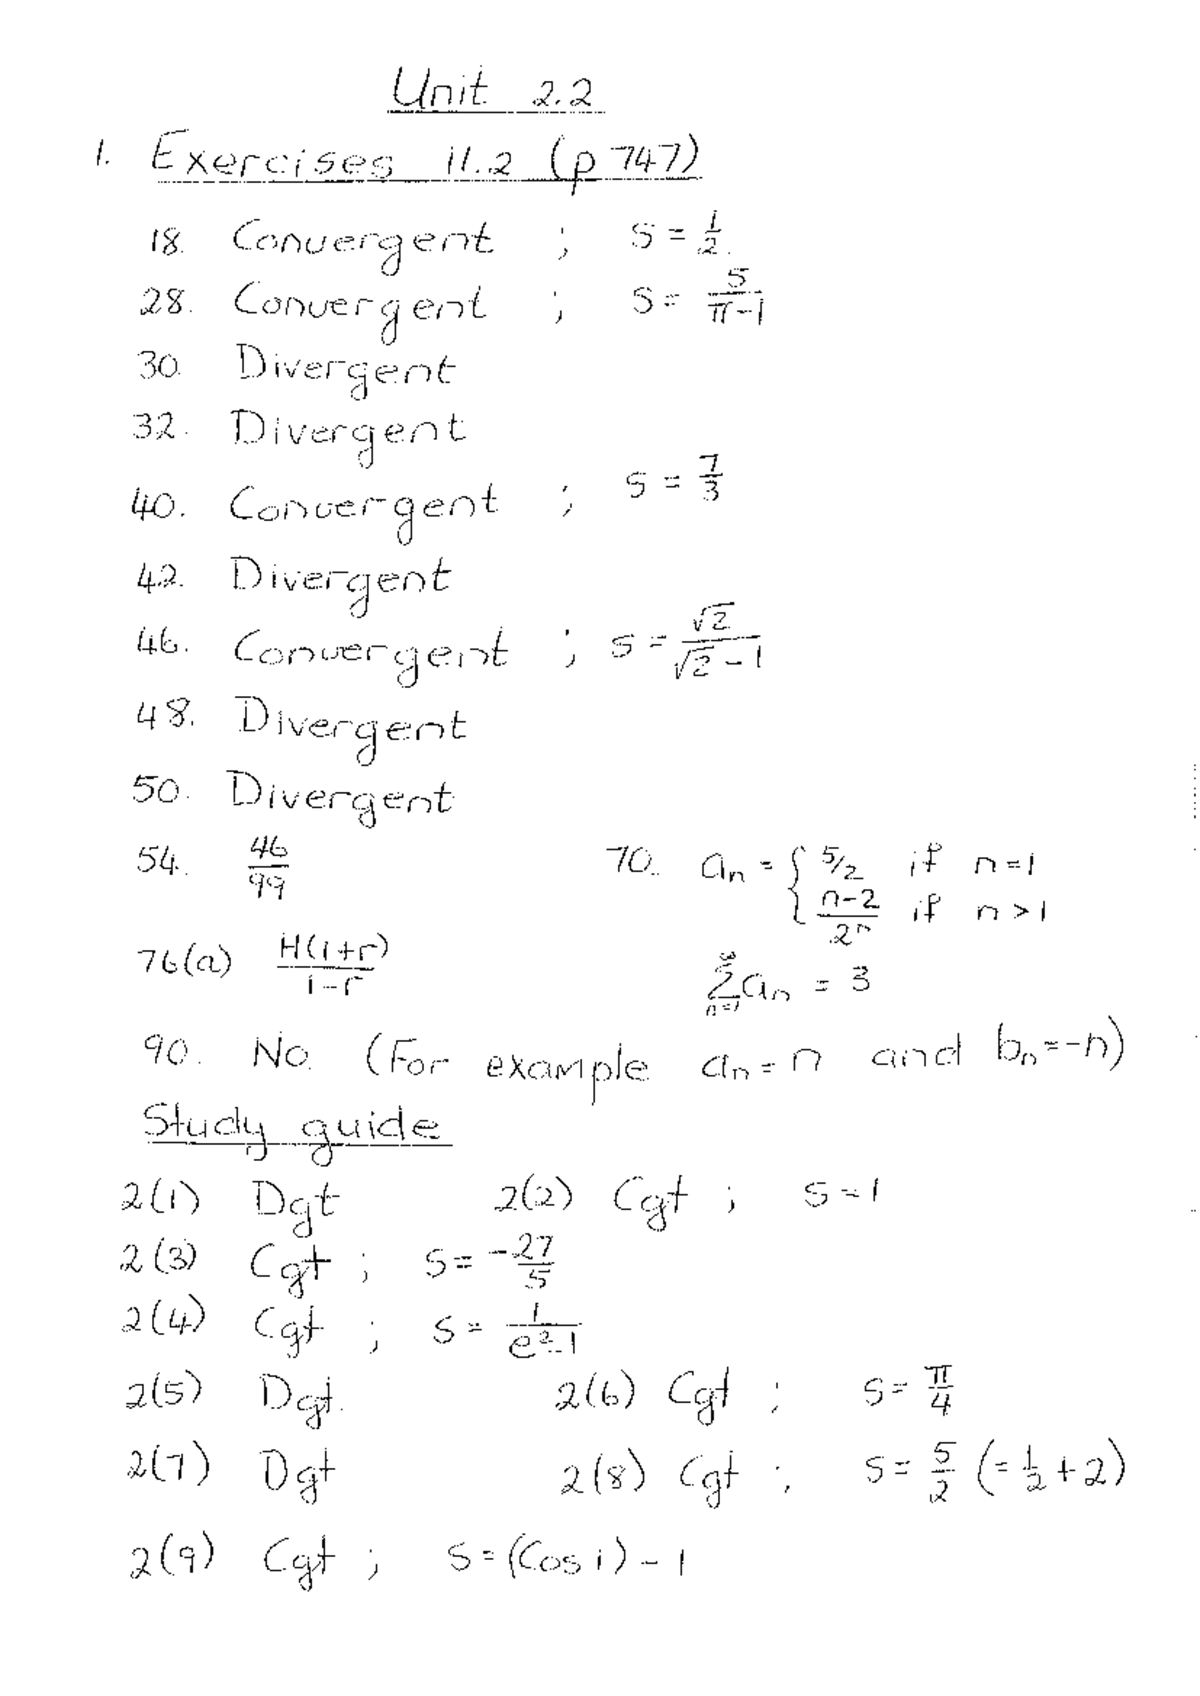 Unit 2.2
1. Exercises 11.2 (p 747)
18. Convergent ; S = 1/2.
28. Convergent ; S = 5/(π-1)
30. Divergent
32. Divergent
40. Convergent ; S = 7/3
42. Divergent
46. Convergent ; S = √2/(√2 - 1)
48. Divergent
50. Divergent
54. 46/99
70. aₙ = { 5/2 if n=1
(n-2)/2ⁿ if n > 1
76(a) H(1+r)/(1-r)
∞∑n=1 aₙ = 3
90. No. (For example aₙ = n and bₙ = -n)
Study guide
2(1) Dgt 2(2) Cgt ; S = 1
2(3) Cgt ; S = -27/5
2(4) Cgt ; S = 1/(e²-1)
2(5) Dgt. 2(6) Cgt ; S = π/4
2(7) Dgt 2(8) Cgt ; S = 5/2 (= 1/2 + 2)
2(9) Cgt ; S = (Cos 1) - 1